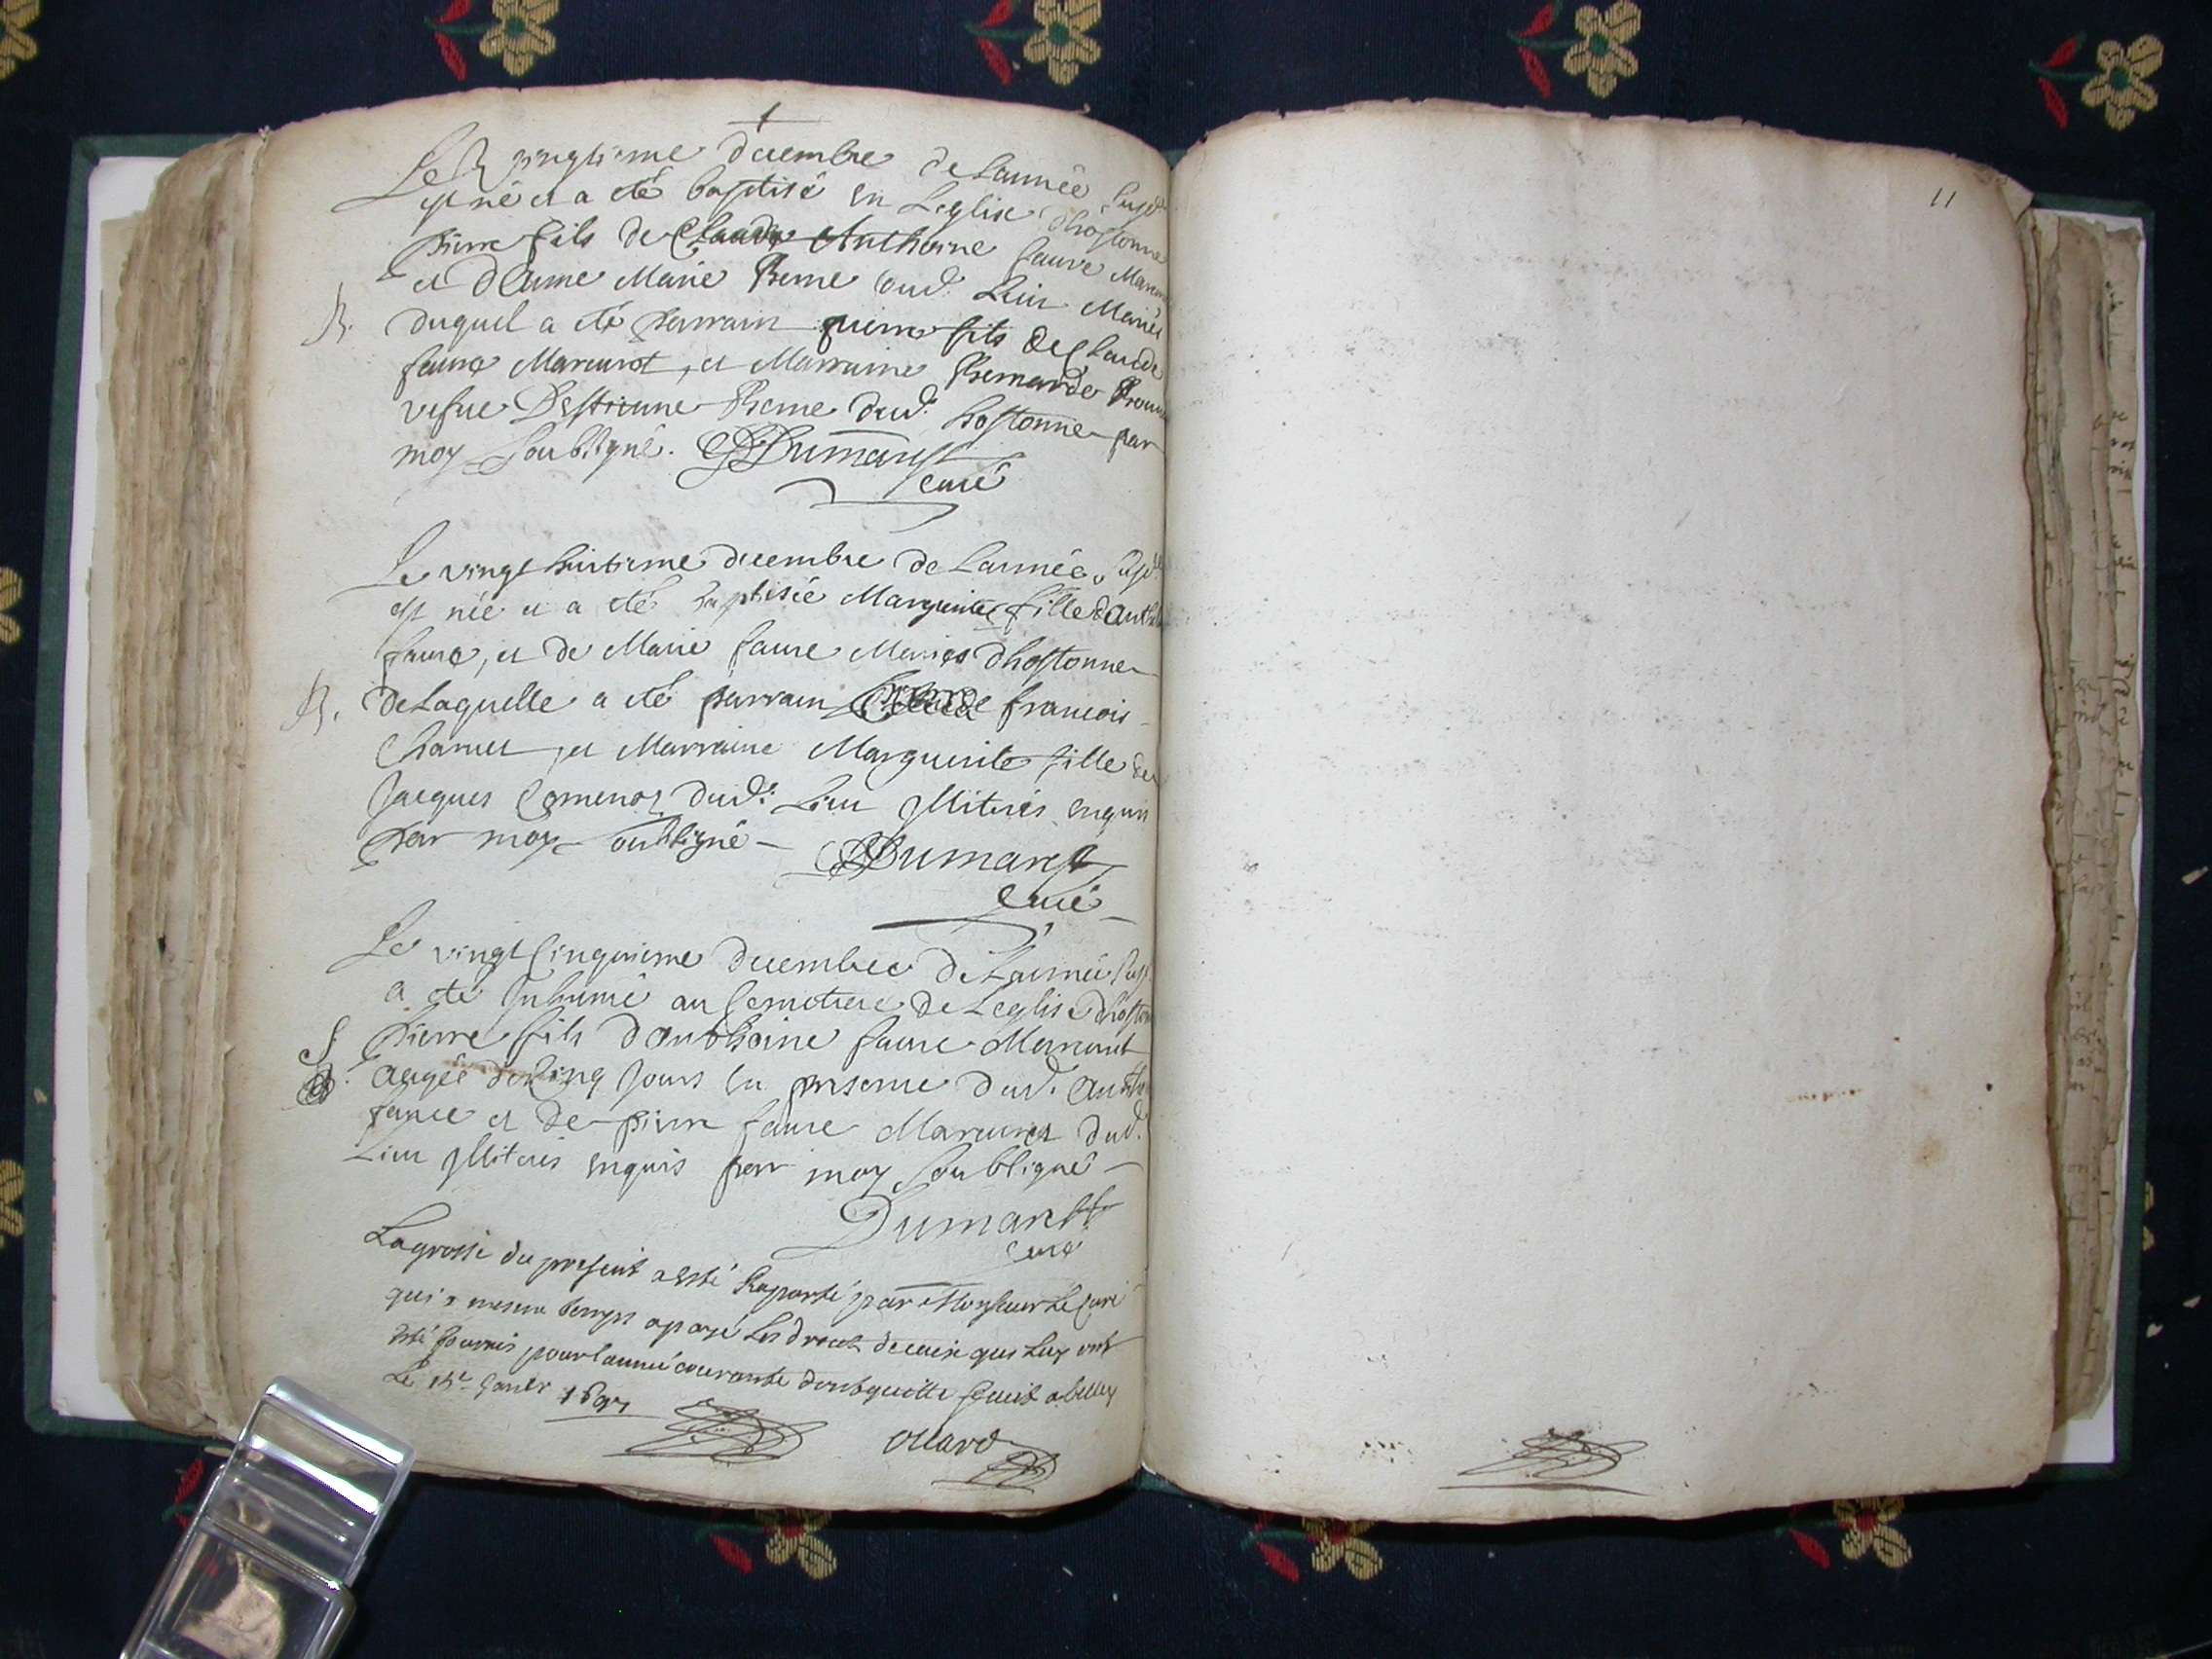 Le vingtieme decembre de Lannée susd.
est né et a eté baptisé en Leglise dhostonne
pierre fils de Claude Anthoine faure
et dAnne Marie Berne dud. Lieu Mariés
B. duquel a eté parrain pierre fils de Claude
faure Marcurot, et Marraine Bernarde
vefue Destienne Berne dud. hostonne par
moy soubsigné. Dumarest
curé
Le vingt huitieme decembre de Lannée susd.
est née et a eté baptisée Marguerite fille d
faure, et de Marie faure Mariés dhostonne
B. de Laquelle a eté parrain francois
et Marraine Marguerite fille de
Jacques dud. Lieu Miterés enquis
par moy soubsigné Dumarest
curé
Le vingt cinquieme decembre de Lannée susd.
a eté Inhumé au Cemetiere de Leglise dhostonne
S pierre fils danthoine faure
aagée de cinq Jours en presence dud.
faure et de pierre faure Marcurot dud.
Lieu Miterés enquis par moy soubsigné
Dumarest
curé
La grosse du present a esté Raporté par Monsieur Le Curé
qui a mesme temps apayé Les droits que Luy ont
esté fournis pour lannée courante dont quitte a belley
Le Janvr
ollard
11